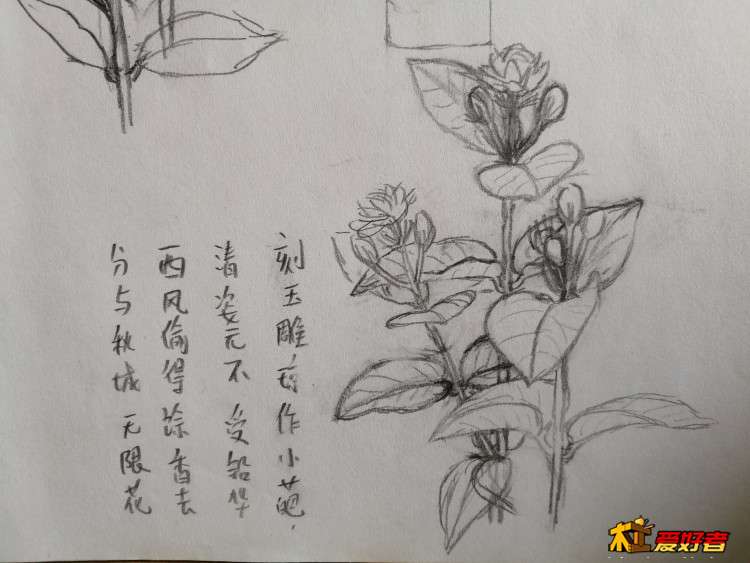 刻玉雕琼作小葩,
清姿元不受铅华
西风偷得余香去
分与秋城无限花
木工爱好者